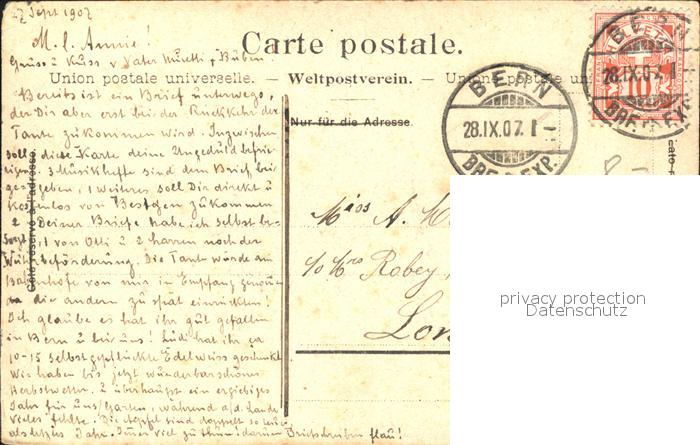 27 Sept 1907
M. l. Annie!
Gruss u Kuss v Vater Muetti u Buben.
Carte postale.
Union postale universelle. — Weltpostverein. — Union postale uni
Nur für die Adresse.
Côté réservé à l'adresse.
BERN
28.IX.07. I
BRF. EXP.
BERN
28.IX.07. I
BRF. EXP.
HELVETIA
10
Bereits ist ein Brief unterwegs,
der Dir aber erst bei der Rückkehr der
Tante zukommen wird. Inzwischen
soll diese Karte deine Ungeduld befrie
digen. 3 Musikhefte sind dem Brief bei
gegeben, 1 weiteres soll Dir direkt u
kostenlos von zukommen
2 Deiner Briefe habe ich selbst be-
sorgt, 1 von Otti u 2 harren noch der
Weiterbeförderung. Die Tante wurde am
Bahnhofe von mir in Empfang genommen
da die andern zu spät einrückten!
Ich glaube es hat ihr gut gefallen
in Bern u bei uns! hat ihr ca
10-15 selbstgepflückte Edelweiss geschenkt
Wir haben bis jetzt wunderbarschönes
Herbstwetter. u überhaupt ein ergiebiges
Jahr für uns/Garten, während a/d. Lande
vieles fehlte. Die Äpfel sind doppelt so teuer
als letztes Jahr. Immer viel zu thun! darum Briefschreiben flau!
Miss A.
c/o Mrs Robey
Lon
privacy protection
Datenschutz